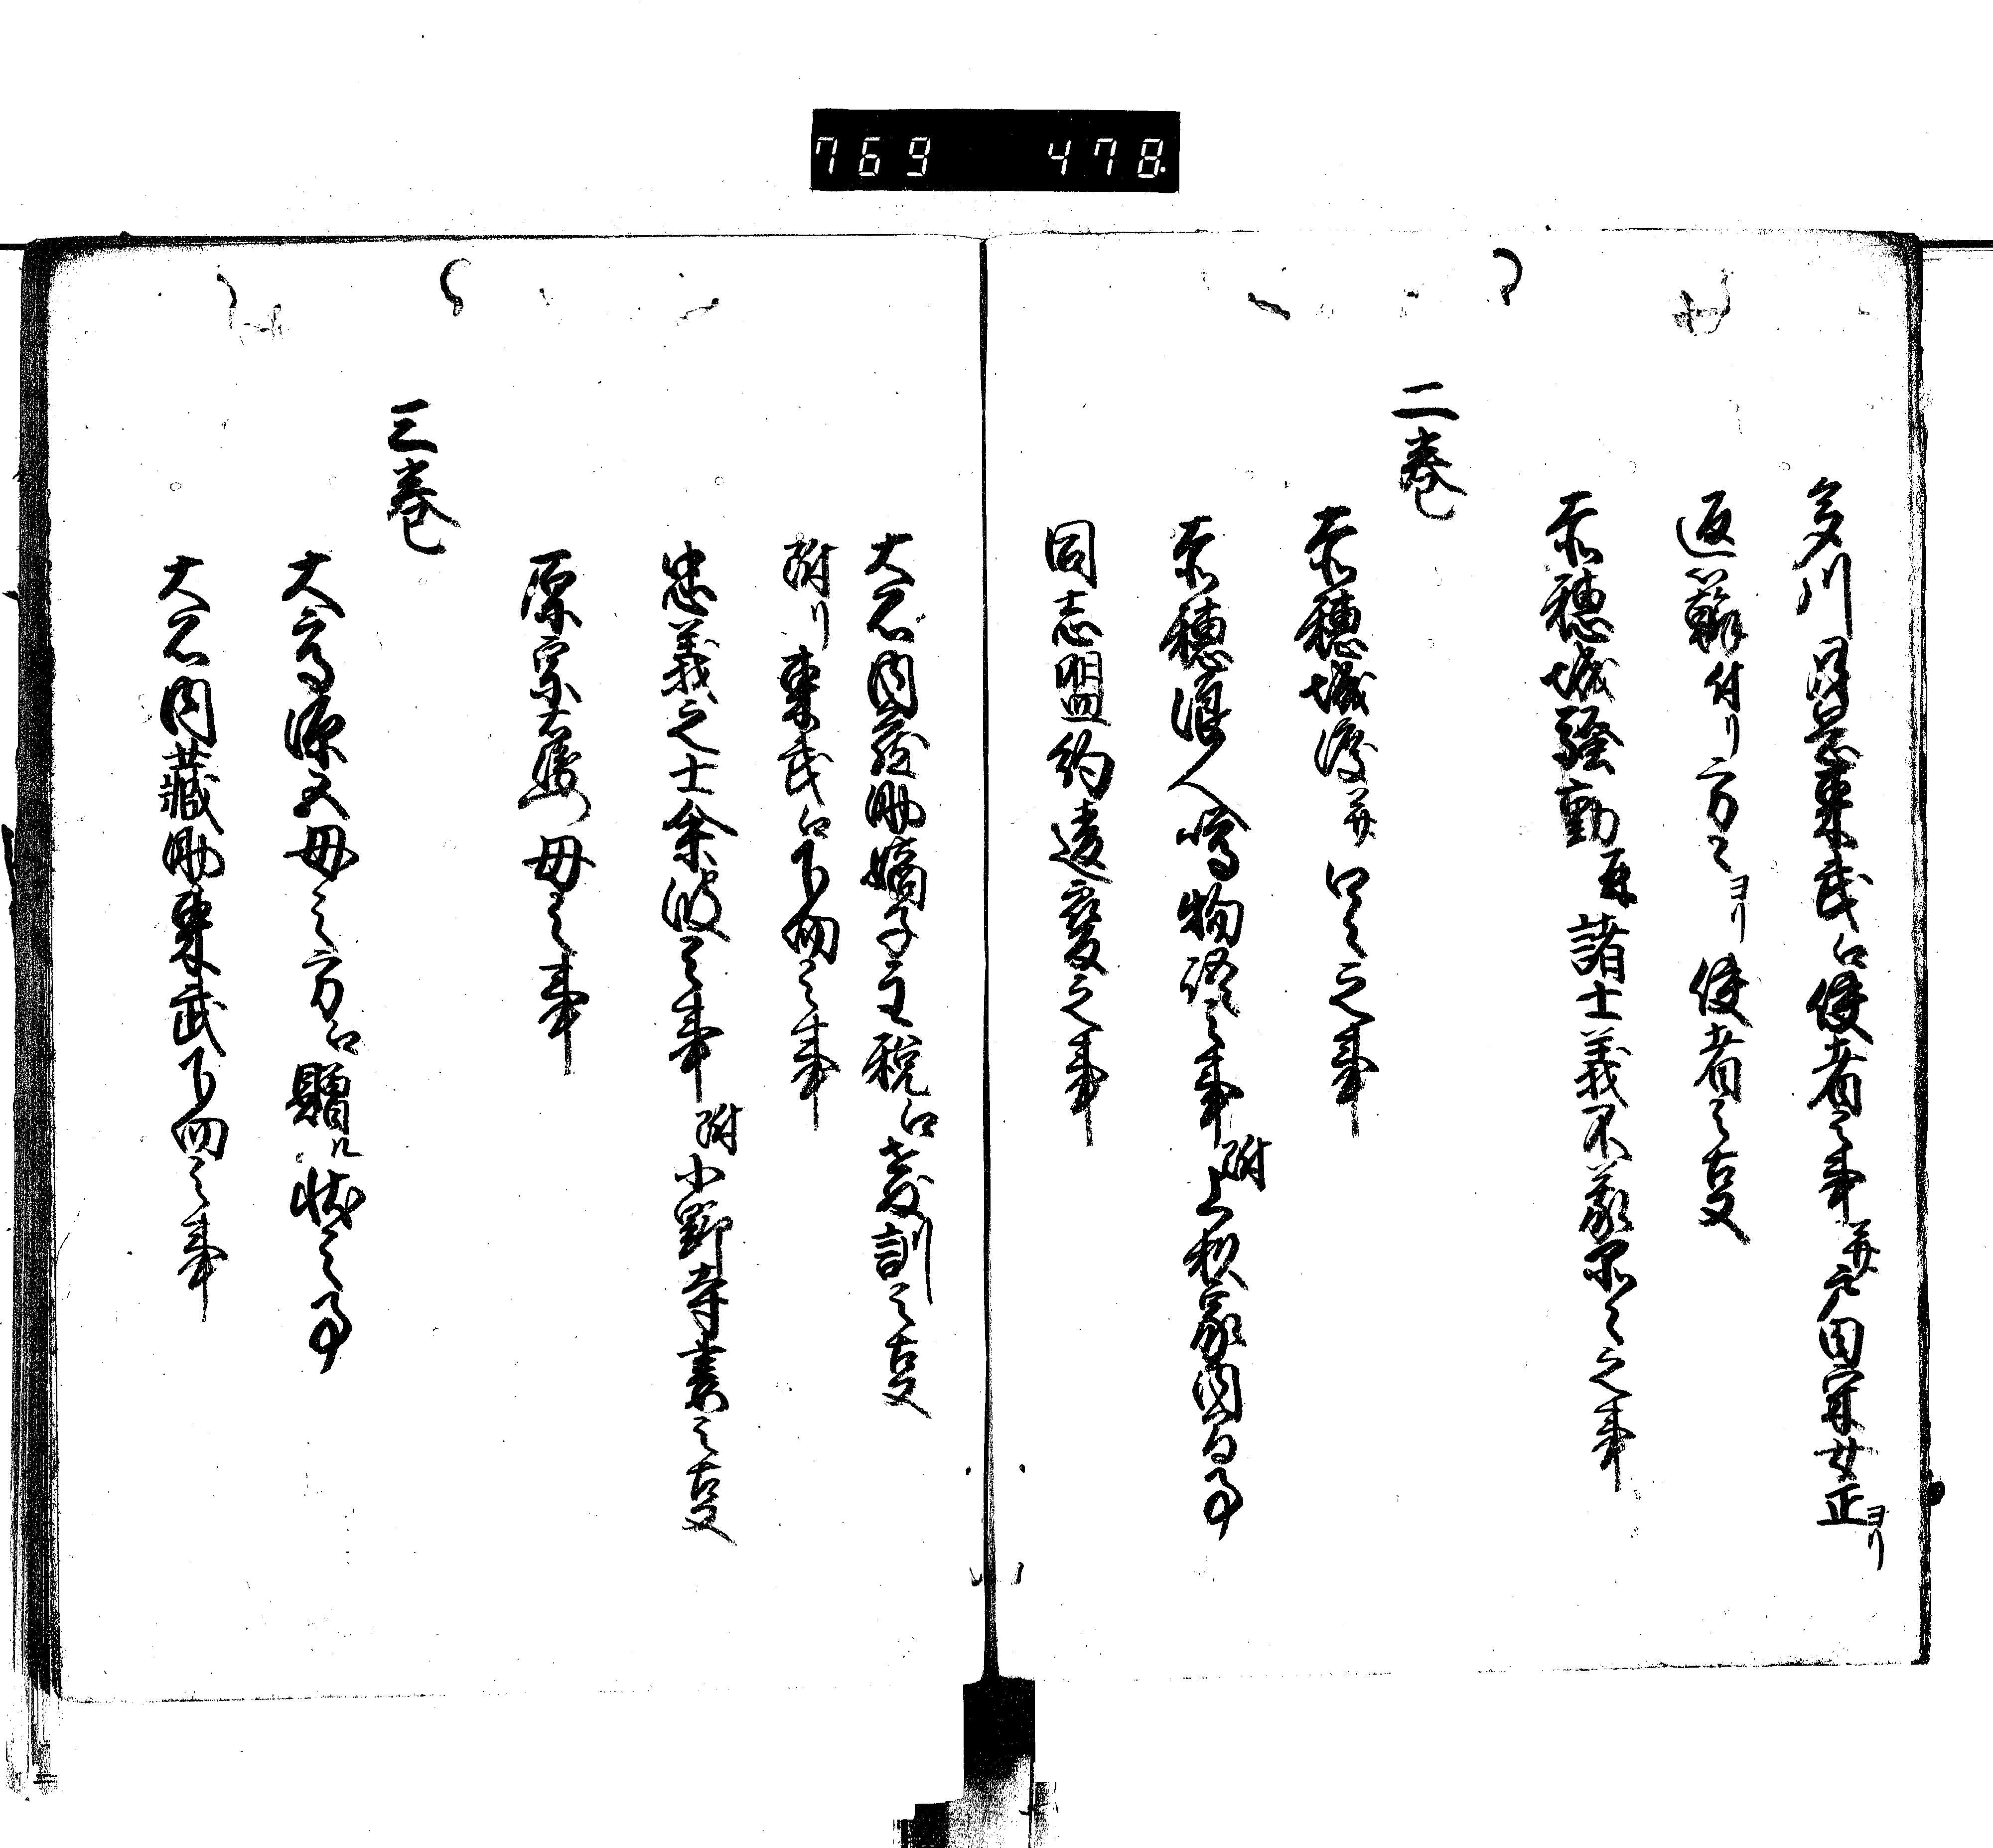 769 478
多川月岡東武江使者之事并戸田采女正ヨリ
返簡付リ方々ヨリ使者之叓
赤穂城騒動并諸士義不義品々之事
二巻
赤穂城渡并口々之事
赤穂浪人噂物語之事附上杉家内旬事
同志盟約違変之事
大石内蔵助嫡子主税江教訓之叓
附リ東武江下向之事
忠義之士余波之事附小野寺妻之叓
原宗右衛門母之事
三巻
大高源五母之方江贈ル状之事
大石内蔵助東武下向之事